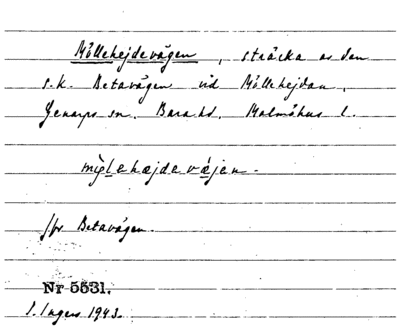 Möllehejdevägen, sträcka av den
s.k. Betavägen vid Möllehejdan,
Genarps sn. Bara hd. Malmöhus l.
jfr Betavägen.
Nr 5531.
I. Ingers 1943.